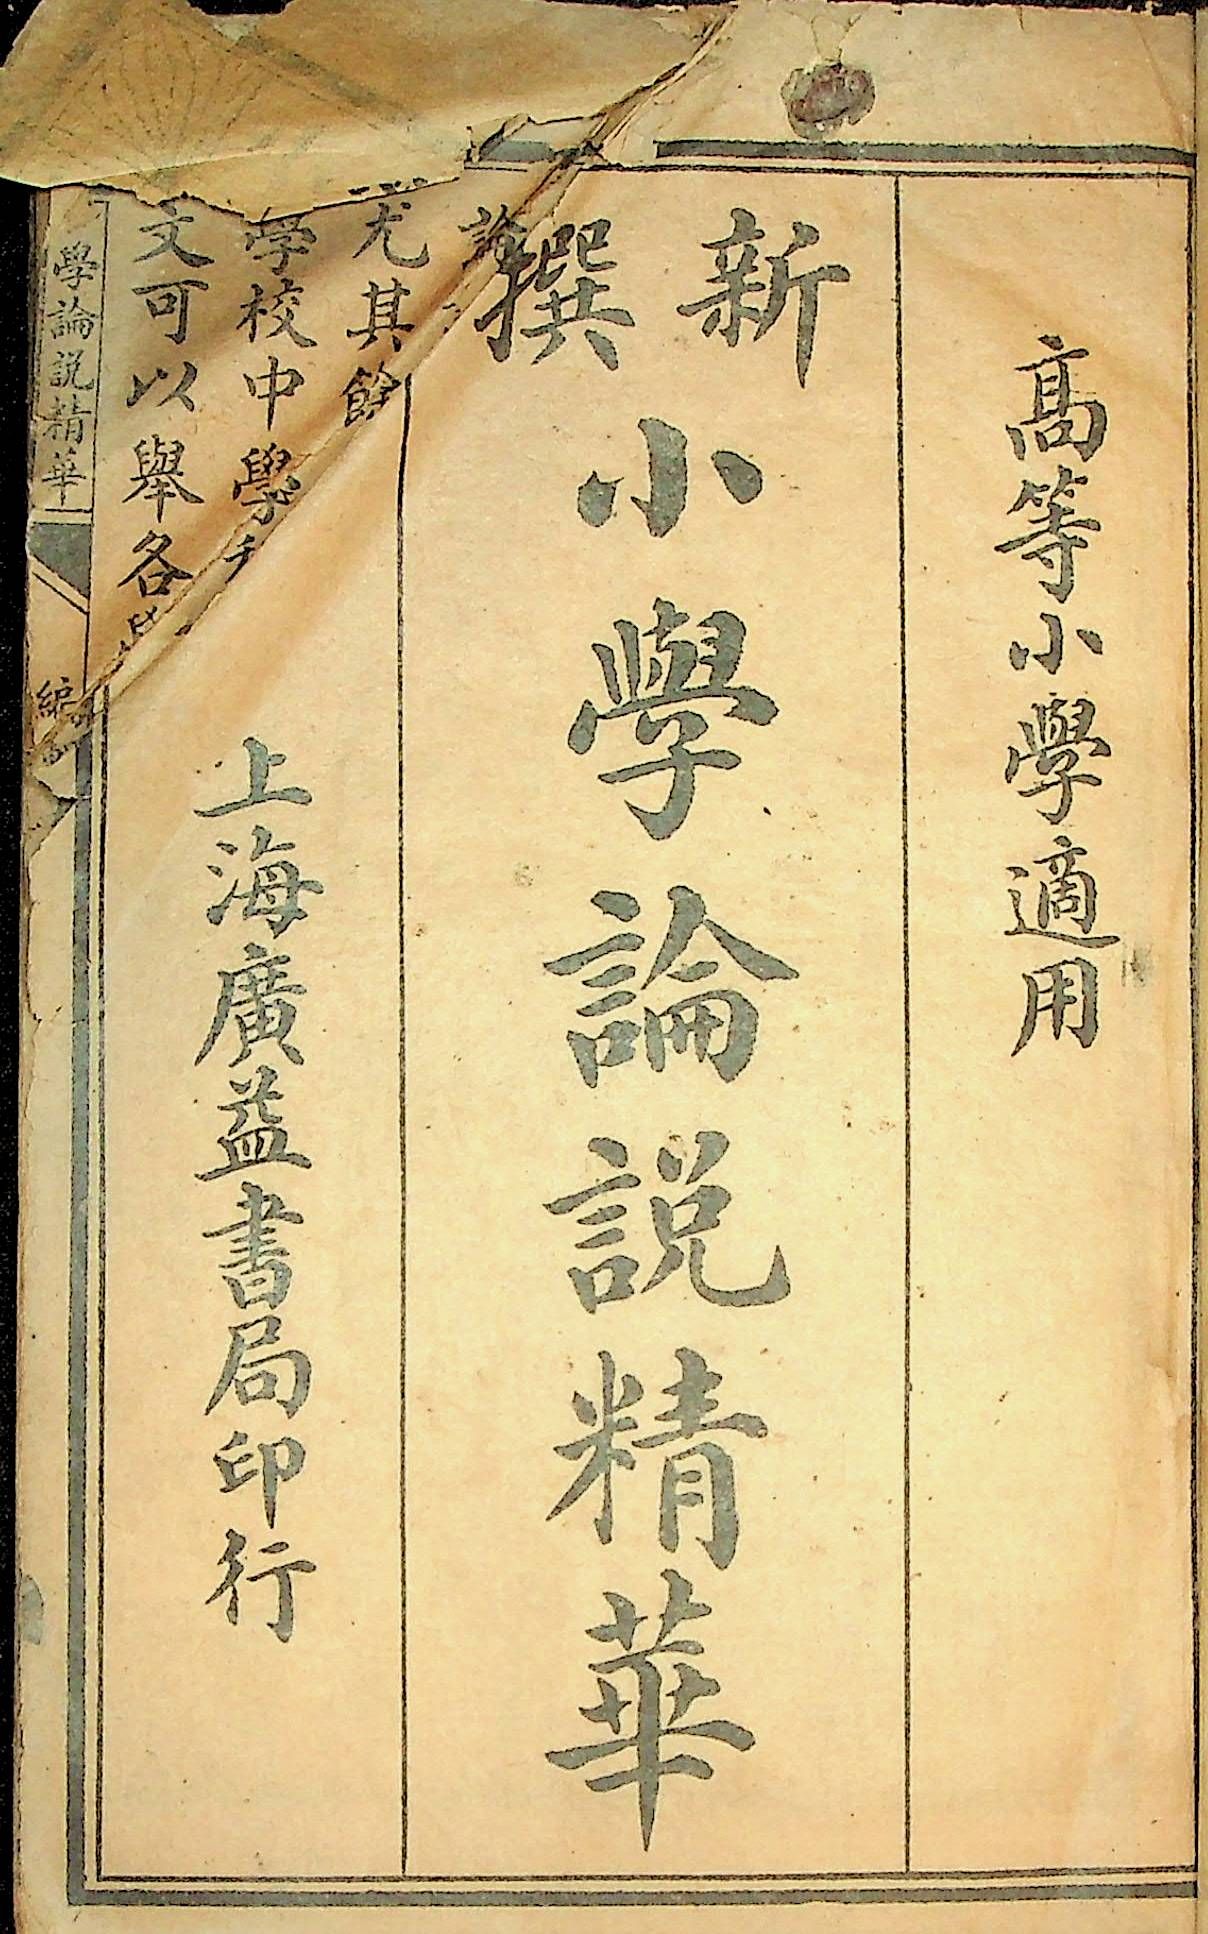 高等小學適用
新撰
小學論説精華
上海廣益書局印行
尤其餘
學校中學
文可以舉各
學論説精華
編